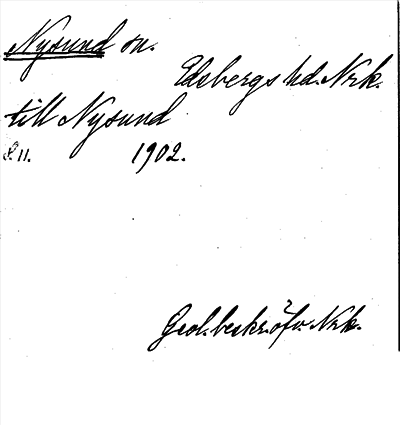 Nysund sn.
Edsbergs hd. Nrk.
till Nysund
S. 11. 1902.
Geol. beskr. öfv. Nrk.